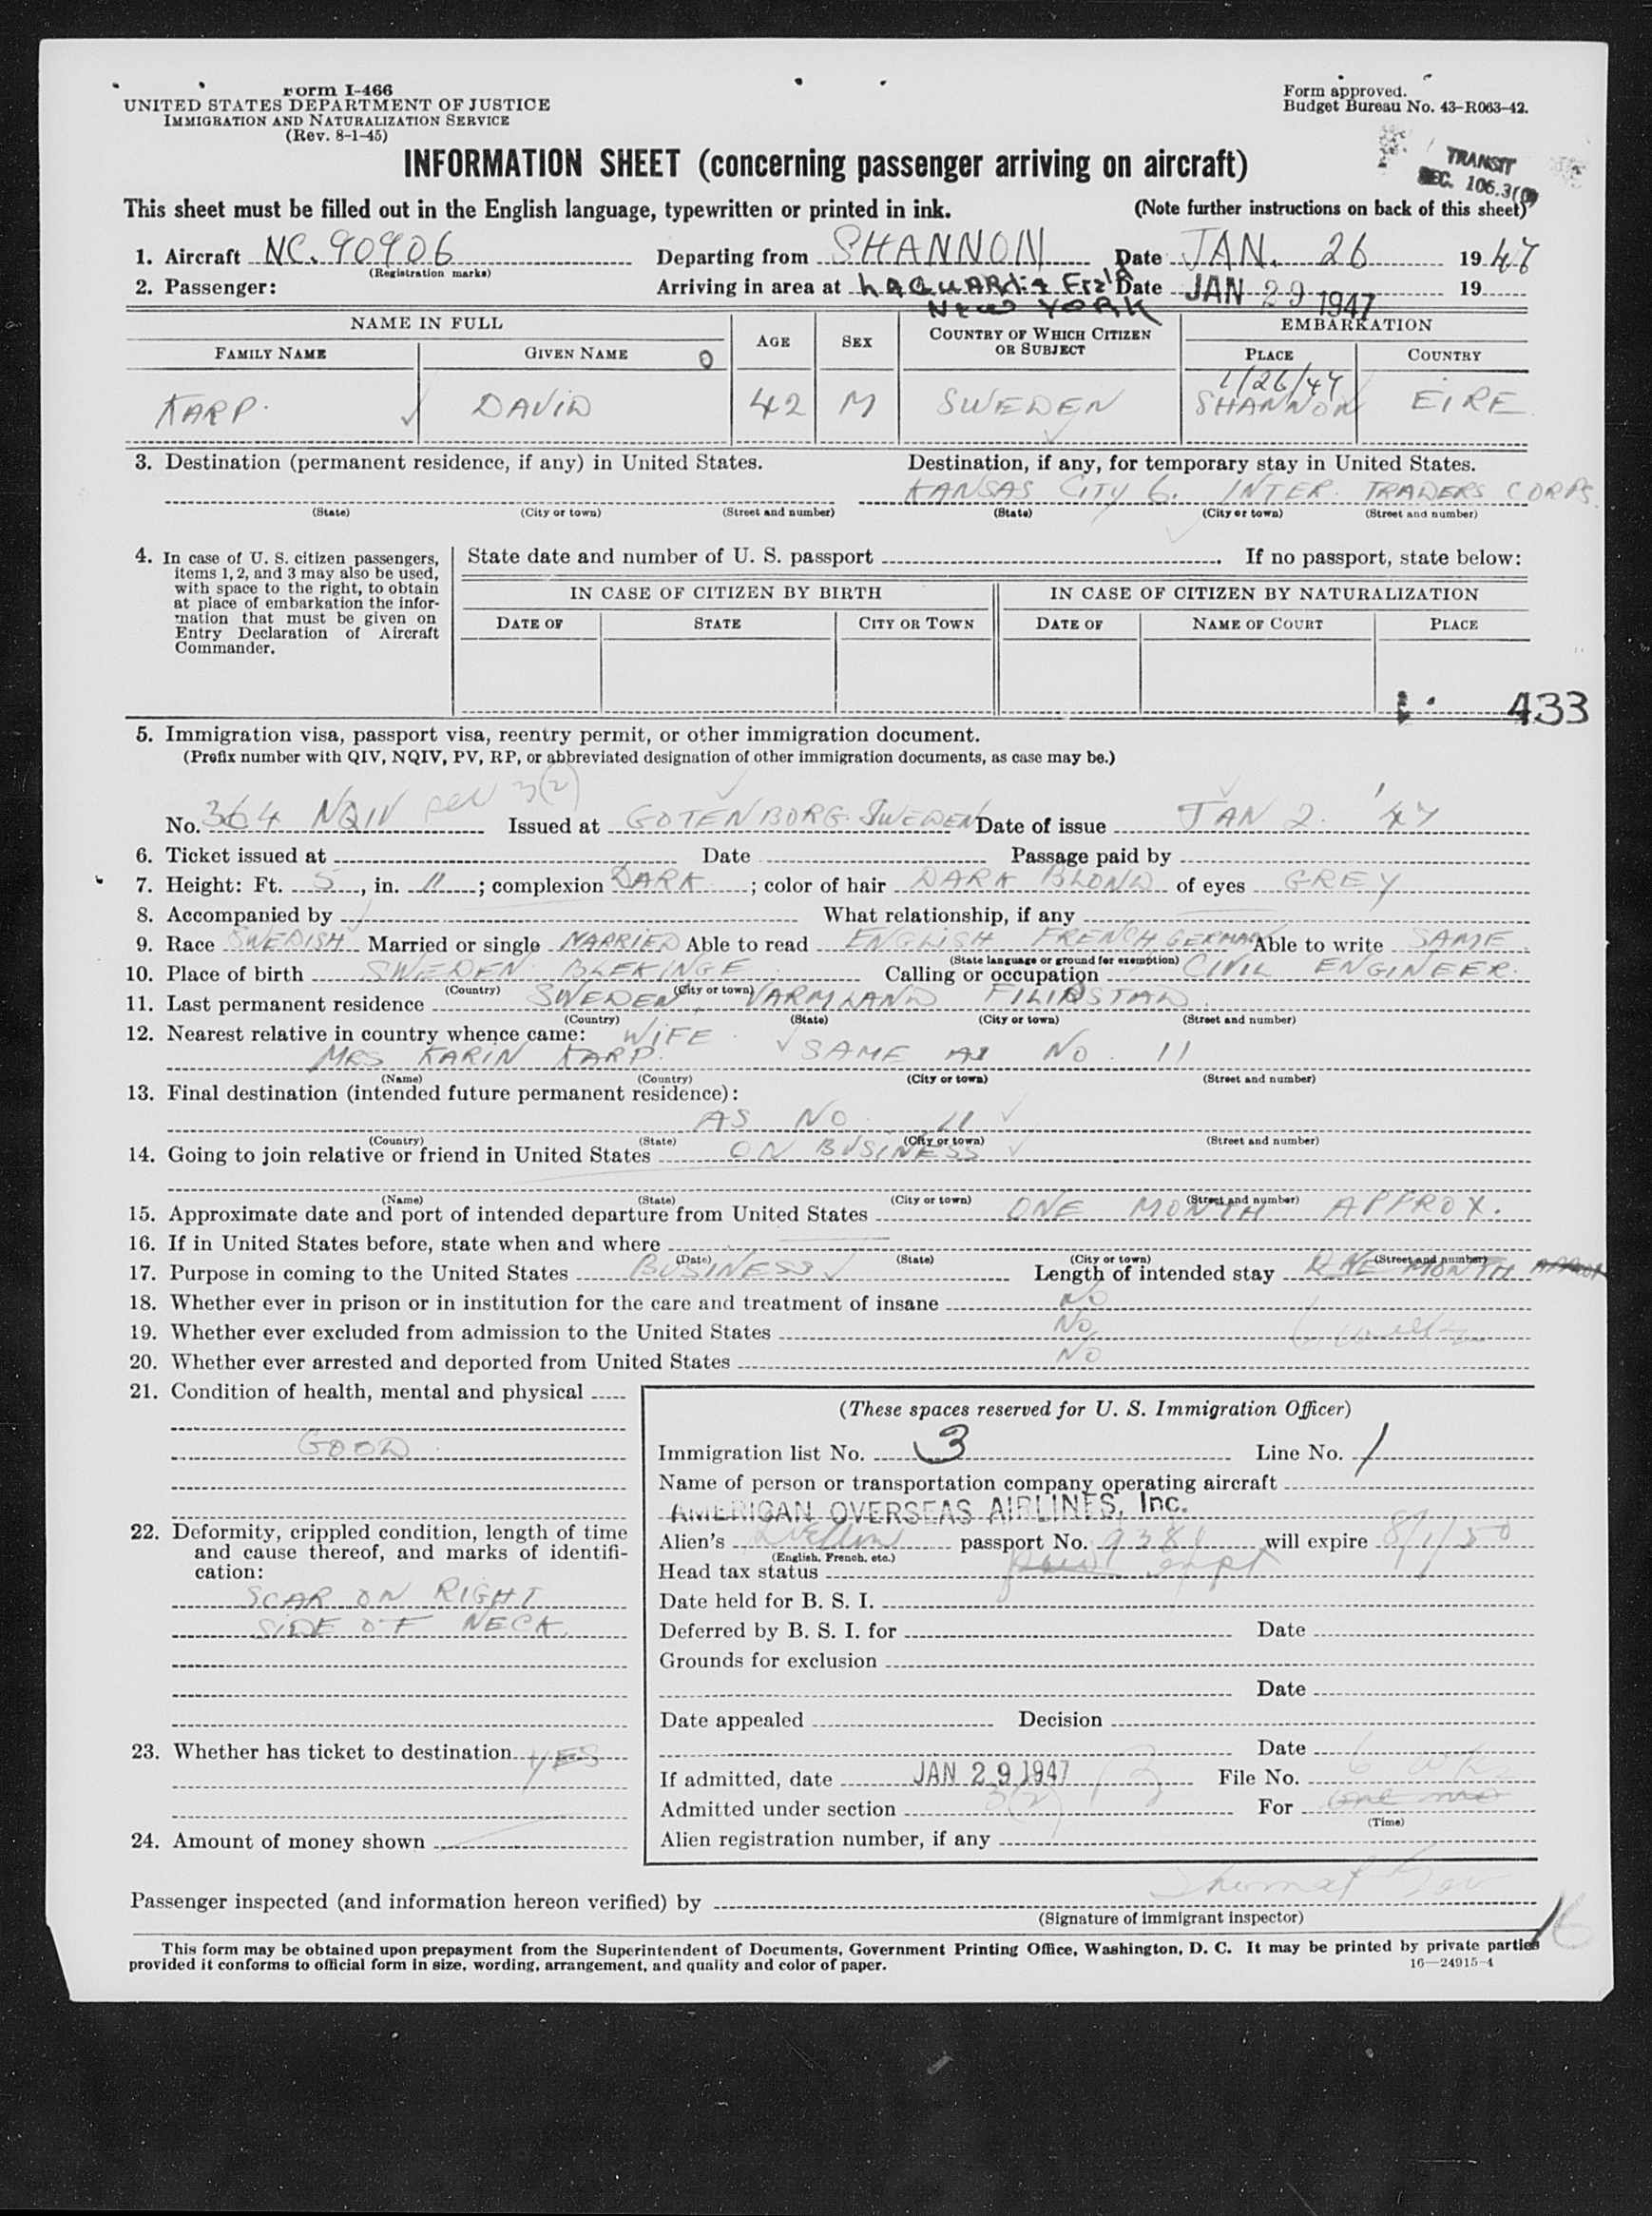 Form I-466
UNITED STATES DEPARTMENT OF JUSTICE
IMMIGRATION AND NATURALIZATION SERVICE
(Rev. 8-1-45)
Form approved.
Budget Bureau No. 43-R063-42.
INFORMATION SHEET (concerning passenger arriving on aircraft)
TRANSIT
SEC. 106.3
This sheet must be filled out in the English language, typewritten or printed in ink. (Note further instructions on back of this sheet)
1. Aircraft NC. 90906 Departing from SHANNON Date JAN. 26 1947
(Registration marks)
2. Passenger: Arriving in area at LAGUARdia FiElD Date JAN 29 1947 19
NEW YORK
NAME IN FULL AGE SEX COUNTRY OF WHICH CITIZEN OR SUBJECT EMBARKATION
FAMILY NAME GIVEN NAME O PLACE COUNTRY
1/26/47
KARP. DAVID 42 M SWEDEN SHANNON EIRE
3. Destination (permanent residence, if any) in United States. Destination, if any, for temporary stay in United States.
KANSAS CITY 6. INTER. TRADERS CORPS.
(State) (City or town) (Street and number) (State) (City or town) (Street and number)
4. In case of U. S. citizen passengers, items 1, 2, and 3 may also be used, with space to the right, to obtain at place of embarkation the information that must be given on Entry Declaration of Aircraft Commander.
State date and number of U. S. passport . If no passport, state below:
IN CASE OF CITIZEN BY BIRTH IN CASE OF CITIZEN BY NATURALIZATION
DATE OF STATE CITY OR TOWN DATE OF NAME OF COURT PLACE
433
5. Immigration visa, passport visa, reentry permit, or other immigration document.
(Prefix number with QIV, NQIV, PV, RP, or abbreviated designation of other immigration documents, as case may be.)
3(2)
No. 364 NQIV Issued at GOTENBORG. SWEDEN Date of issue JAN 2. '47
6. Ticket issued at Date Passage paid by
7. Height: Ft. 5, in. 11; complexion DARK; color of hair DARK BLOND of eyes GREY
8. Accompanied by What relationship, if any
9. Race SWEDISH Married or single MARRIED Able to read ENGLISH FRENCH GERMAN Able to write SAME
(State language or ground for exemption)
10. Place of birth SWEDEN BLEKINGE Calling or occupation CIVIL ENGINEER.
(Country) (City or town)
11. Last permanent residence SWEDEN, VARMLAND FILIPSTAD.
(Country) (State) (City or town) (Street and number)
12. Nearest relative in country whence came: WIFE.
MRS KARIN KARP. SAME AS NO. 11
(Name) (Country) (City or town) (Street and number)
13. Final destination (intended future permanent residence):
AS NO. 11
(Country) (State) (City or town) (Street and number)
14. Going to join relative or friend in United States ON BUSINESS
(Name) (State) (City or town) (Street and number)
15. Approximate date and port of intended departure from United States ONE MONTH APPROX.
16. If in United States before, state when and where
(Date) (State) (City or town) (Street and number)
17. Purpose in coming to the United States BUSINESS Length of intended stay ONE MONTH APPROX
18. Whether ever in prison or in institution for the care and treatment of insane NO
19. Whether ever excluded from admission to the United States NO 6 weeks
20. Whether ever arrested and deported from United States NO
21. Condition of health, mental and physical
GOOD.
22. Deformity, crippled condition, length of time and cause thereof, and marks of identification:
SCAR ON RIGHT
SIDE OF NECK.
23. Whether has ticket to destination YES
24. Amount of money shown
(These spaces reserved for U. S. Immigration Officer)
Immigration list No. 3 Line No. 1
Name of person or transportation company operating aircraft
AMERICAN OVERSEAS AIRLINES, Inc.
Alien's passport No. will expire 8/1/50
(English, French, etc.)
Head tax status
Date held for B. S. I.
Deferred by B. S. I. for Date
Grounds for exclusion
Date
Date appealed Decision
Date
If admitted, date JAN 29 1947 File No. 6 wks
Admitted under section 3(2) For one mo
(Time)
Alien registration number, if any
Passenger inspected (and information hereon verified) by
(Signature of immigrant inspector)
16
This form may be obtained upon prepayment from the Superintendent of Documents, Government Printing Office, Washington, D. C. It may be printed by private parties
provided it conforms to official form in size, wording, arrangement, and quality and color of paper.
16—24915-4